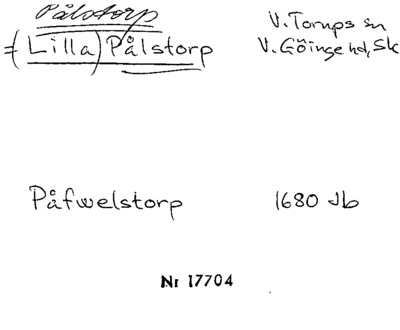 Pålstorp
(Lilla) Pålstorp
V. Torups sn
V. Göinge hd, Sk
Påfwelstorp
1680 Jb
Nr 17704